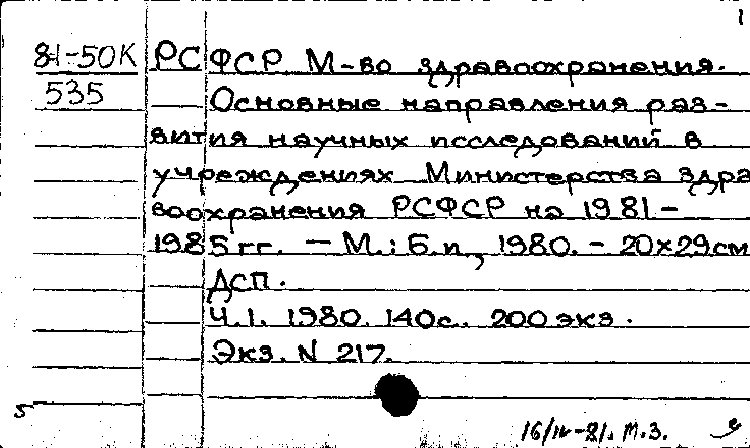 1
81-50К РСФСР М-во здравоохранения.
535 Основные направления раз-
вития научных исследований в
учреждениях Министерства здра
воохранения РСФСР на 1981-
1985 гг. - М.: Б.и., 1980. - 20x29см
ДСП.
Ч.1. 1980. 140с. 200 экз.
Экз. N 217.
5
16/IV-81. М.З.